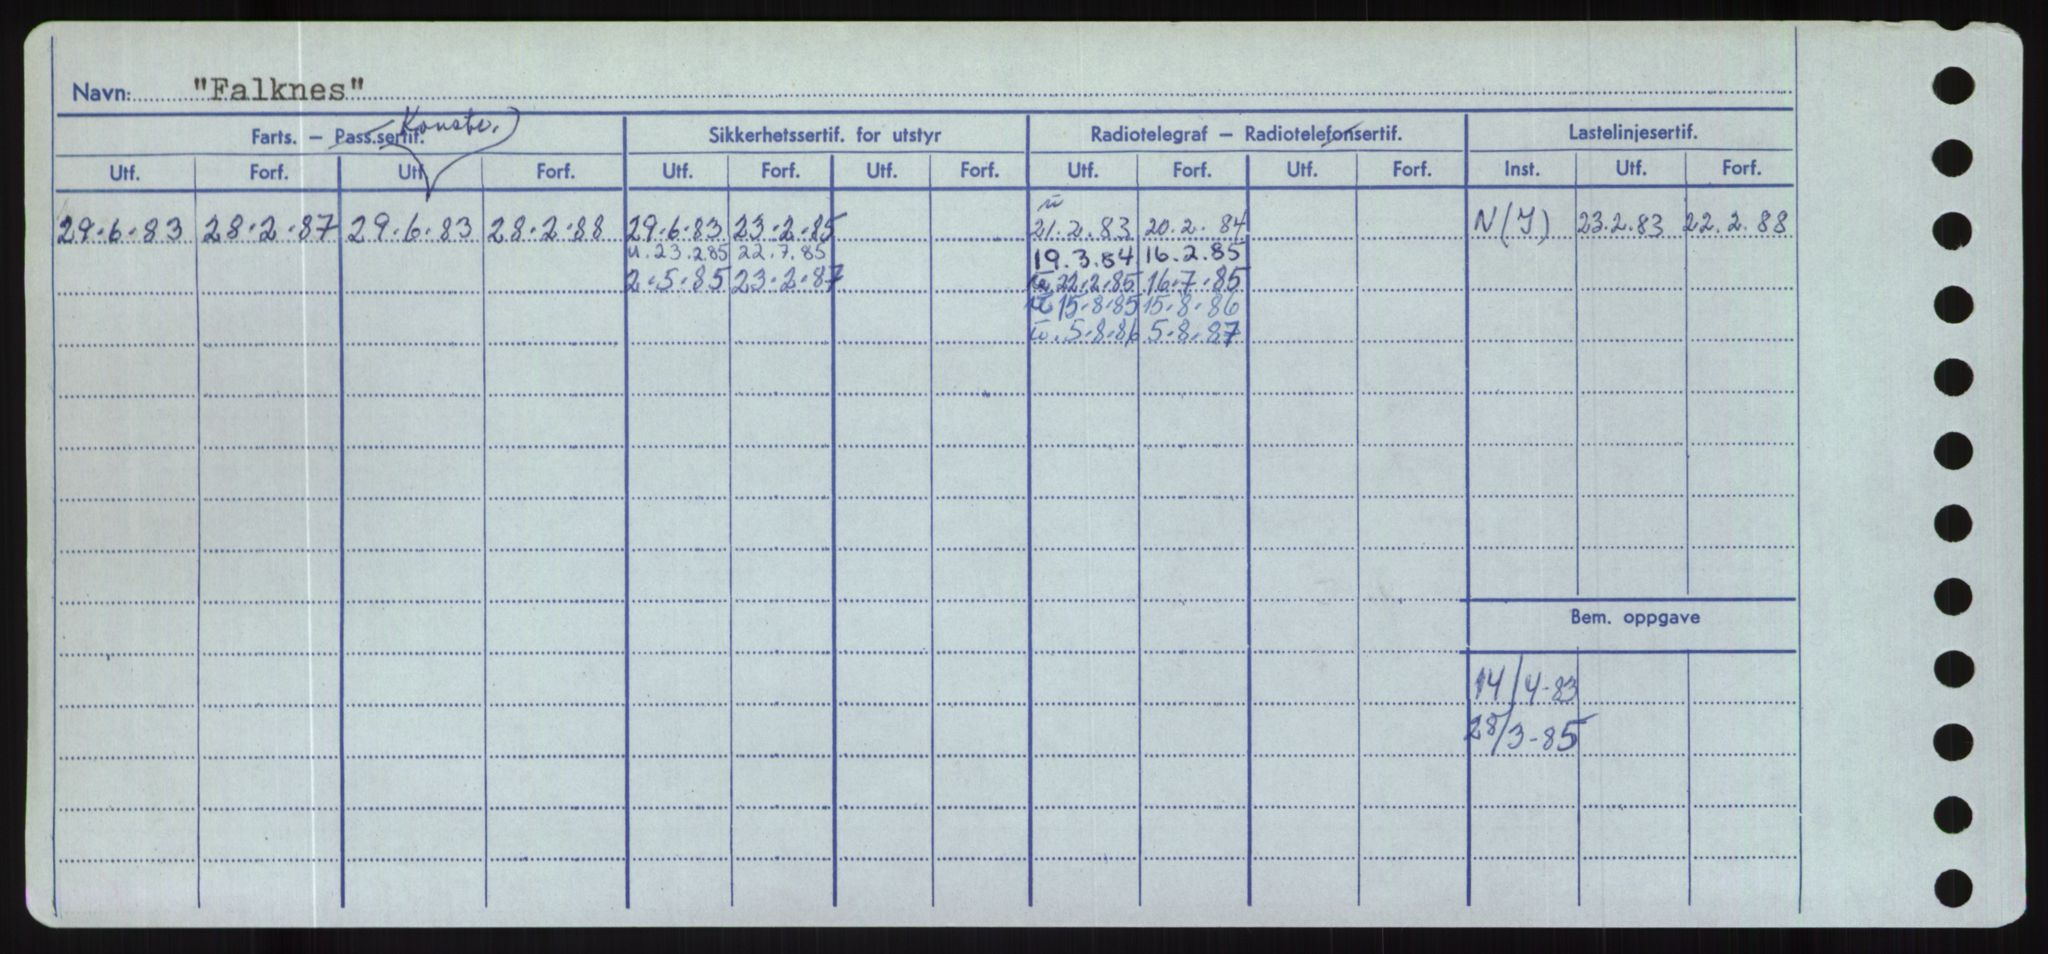 Navn: "Falknes"
Farts. – Pass.sertif. Konstr. Sikkerhetssertif. for utstyr Radiotelegraf – Radiotelefonsertif. Lastelinjesertif.
Utf. Forf. Utf. Forf. Utf. Forf. Utf. Forf. Utf. Forf. Utf. Forf. Inst. Utf. Forf.
29.6.83 28.2.87 29.6.83 28.2.88 29.6.83 23.2.85 u 21.2.83 20.2.84 N(I) 23.2.83 22.2.88
u. 23.2.85 22.7.85 19.3.84 16.2.85
2.5.85 23.2.87 22.2.85 16.7.85
15.8.85 15.8.86
5.8.86 5.8.87
Bem. oppgave
14/4-83
28/3-85